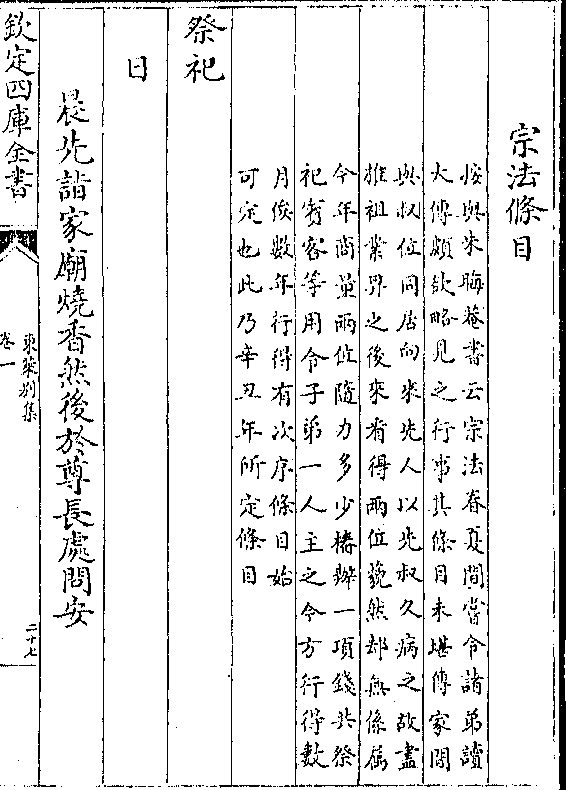 宗法條目
按與朱晦菴書云宗法春夏間嘗令諸弟讀
大傳頗欲略見之行事其條目未堪傳家間
與叔位同居向來先人以先叔久病之故盡
推祖業畀之後來看得兩位藐然却無係屬
今年商量兩位隨力多少椿辦一項錢共祭
祀賓客等用令子弟一人主之今方行得數
月俟數年行得有次序條目始
可定也此乃辛丑年所定條目
祭祀
日
晨先詣家廟燒香然後於尊長處問安
欽定四庫全書
東萊別集
卷一
二十七